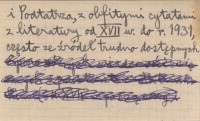 i Podtatrza, z obfitymi cytatami
z literatury od XVII w. do r. 1931,
często ze źródeł trudno dostępnych